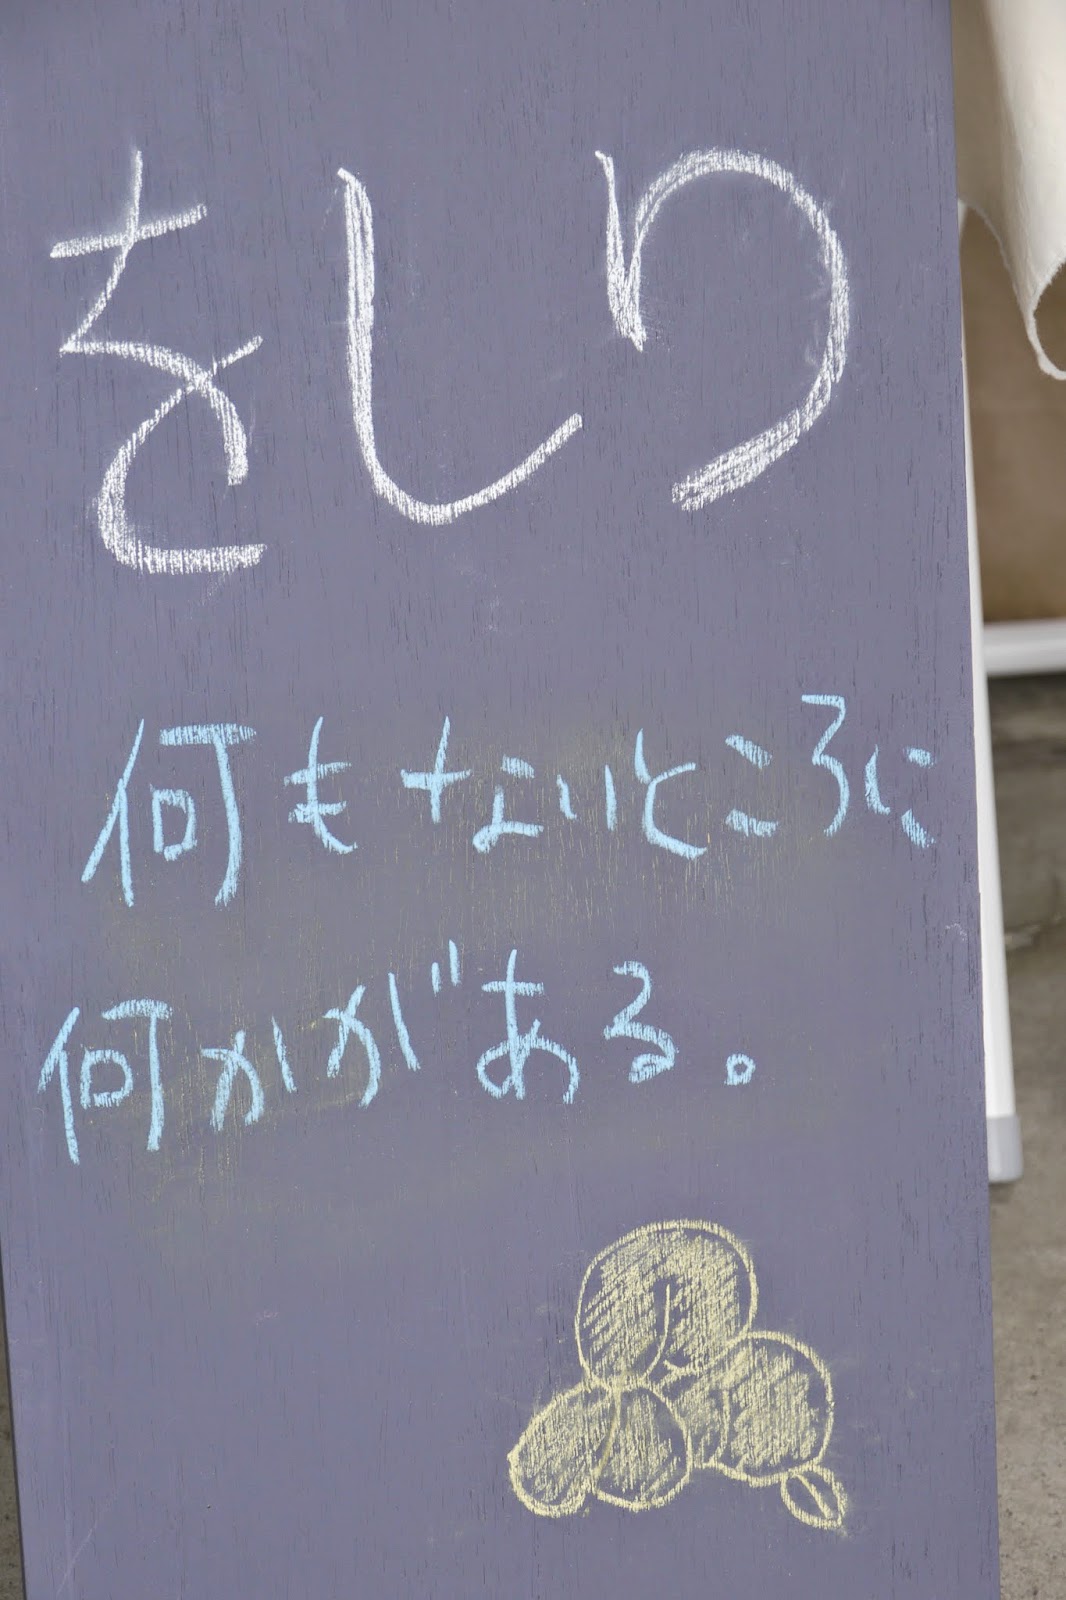 をしり
何もないところに
何かがある。